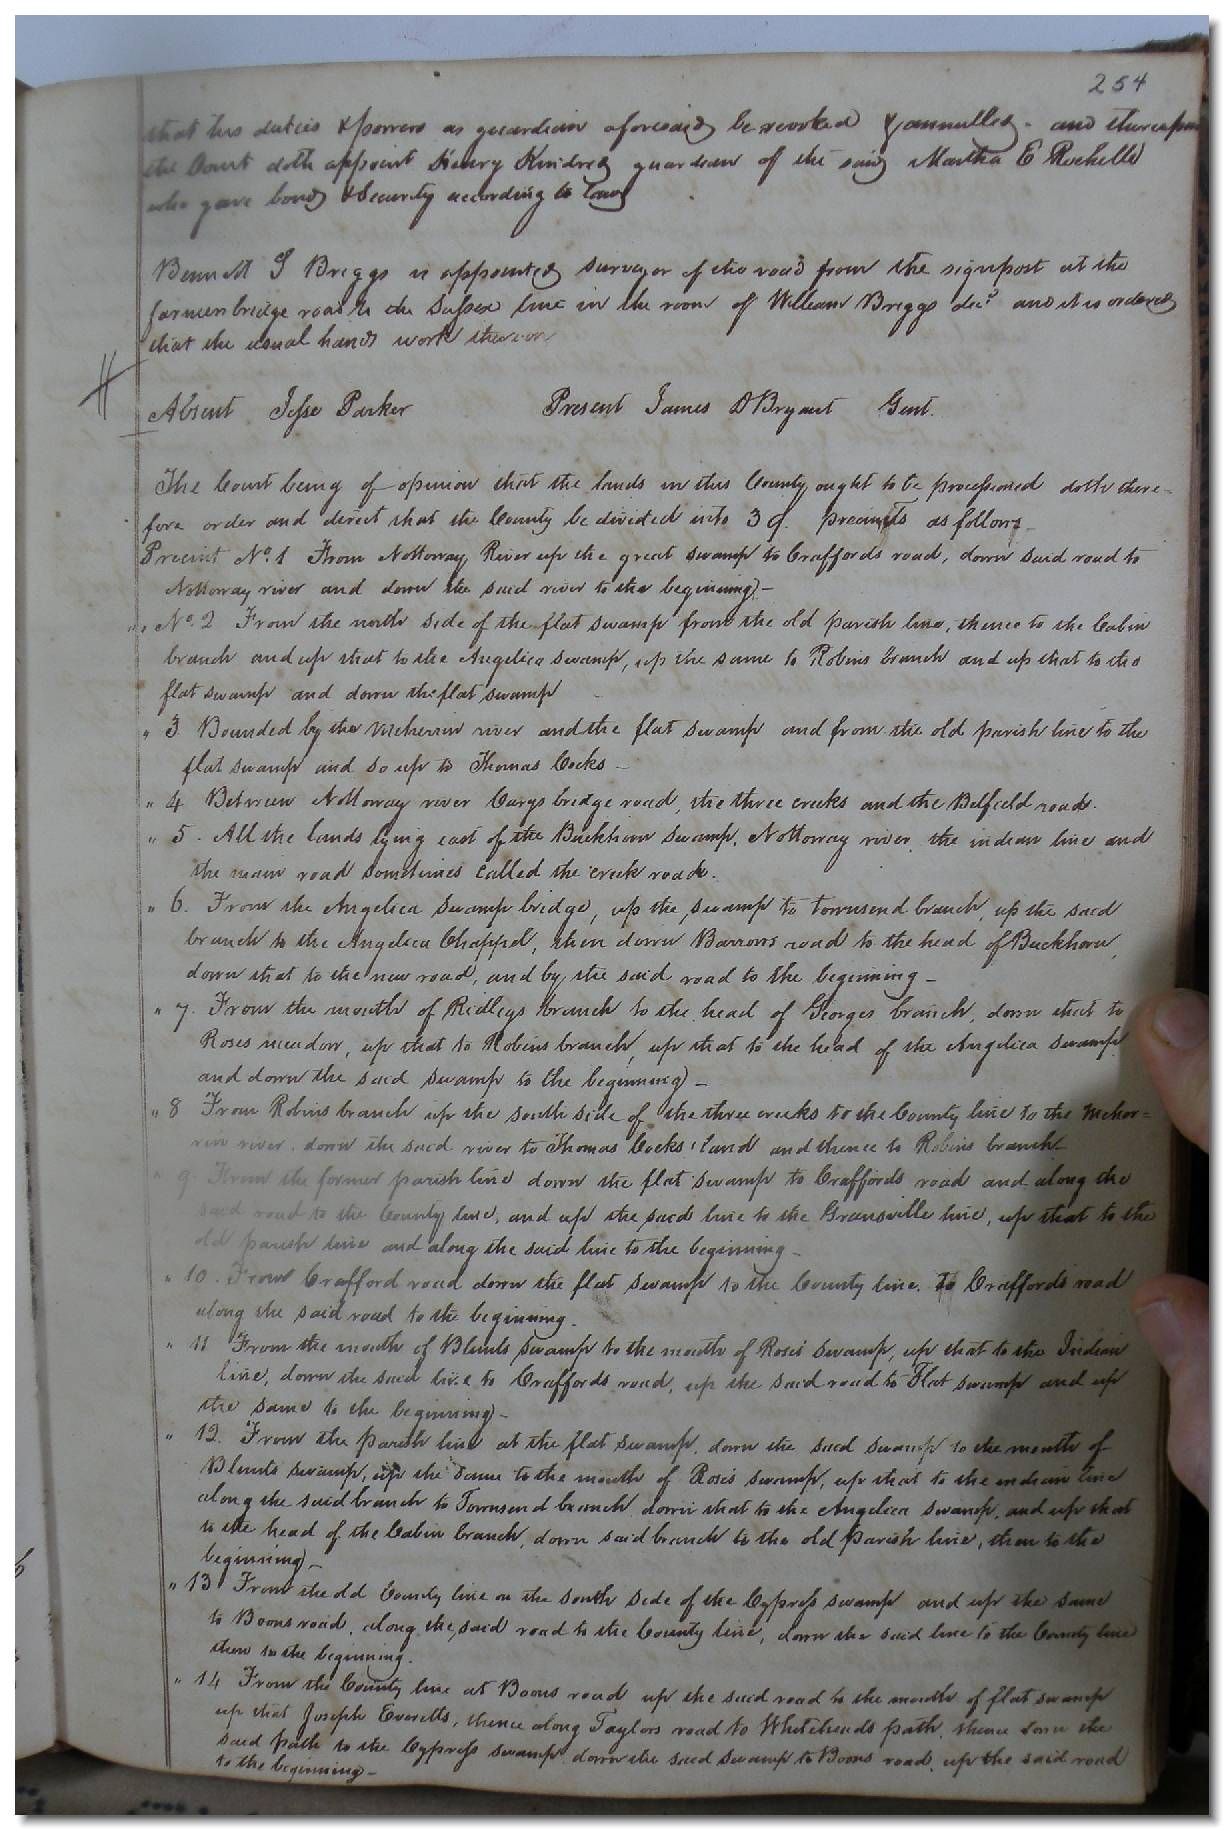 254
that his duties & powers as guardian aforesaid be revoked & annulled. and thereupon
the Court doth appoint Henry Kindred guardian of the said Martha E Rochelle
who gave bond & Security according to law
Bennett G Briggs is appointed surveyor of the road from the signpost at the
farmersbridge road to the Sussex line in the room of William Briggs decd and it is ordered
that the usual hands work thereon
Absent Jesse Parker Present James D Bryant Gent.
The Court being of opinion that the lands in this County ought to be processioned doth there-
fore order and direct that the County be divided into 39. precincts as follows
Precinct No. 1 From Nottoway River up the great swamp to Craffords road, down said road to
Nottoway river and down the said river to the beginning)-
" No. 2 From the north side of the flat swamp from the old parish line, thence to the Cabin
branch and up that to the Angelica swamp, up the same to Robins branch and up that to the
flat swamp and down the flat swamp
" 3 Bounded by the Meherrin river and the flat swamp and from the old parish line to the
flat swamp and so up to Thomas Cocks -
" 4 Between Nottoway river Carys bridge road, the three creeks and the Belfield road.
" 5. All the lands lying east of the Buckhorn swamp, Nottoway river, the indian line and
the main road sometimes called the creek road.
" 6. From the Angelica swamp bridge, up the swamp to Townsend branch, up the said
branch to the Angelica Chappel, then down Barrows road to the head of Buckhorn,
down that to the new road, and by the said road to the beginning -
" 7. From the mouth of Ridleys branch to the head of Georges branch, down that to
Roses meadow, up that to Robins branch, up that to the head of the Angelica swamp
and down the said swamp to the beginning) -
" 8 From Robins branch up the south side of the three creeks to the County line to the Meher=
rin river. down the said river to Thomas Cocks' land and thence to Robins branch-
" 9. From the former parish line down the flat swamp to Craffords road and along the
said road to the County line, and up the said line to the Greensville line, up that to the
old parish line and along the said line to the beginning -
" 10. From Crafford road down the flat swamp to the County line. To Craffords road
along the said road to the beginning.
" 11 From the mouth of Blunts swamp to the mouth of Roses swamp, up that to the Indian
line, down the said line to Craffords road, up the said road to Flat swamp and up
the same to the beginning)-
" 12. From the parish line at the flat swamp, down the said swamp to the mouth of
Blunts swamp, up the same to the mouth of Roses swamp, up that to the indian line
along the said branch to Townsend branch, down that to the Angelica swamp, and up that
to the head of the Cabin branch, down said branch to the old parish line, then to the
beginning)-
" 13 From the old County line on the south side of the Cypress swamp and up the same
to Boons road, along the said road to the County line, down the said line to the County line
then to the beginning.
" 14 From the County line at Boons road up the said road to the mouth of flat swamp
up that Joseph Everetts, thence along Taylors road to Whiteheads path, thence down the
said path to the Cypress swamp down the said swamp to Boons road, up the said road
to the beginning-